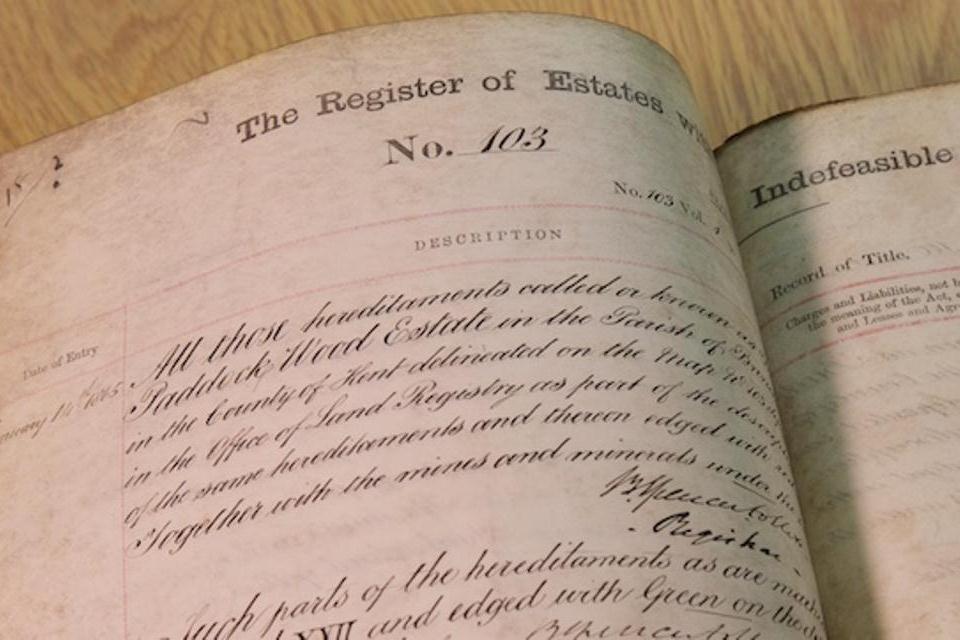 The Register of Estates
No. 103
No. 103 Vol. 1
DESCRIPTION
Date of Entry
All those hereditaments called or known as
Paddock Wood Estate in the Parish of
in the County of Kent delineated on the Map No. 103
in the Office of Land Registry as part of the
of the same hereditaments and thereon edged with
Together with the mines and minerals under the
Registrar
Such parts of the hereditaments as are
XVII and edged with Green on the
Indefeasible
Record of Title.
Charges and Liabilities, not
the meaning of the Act,
and Leases and